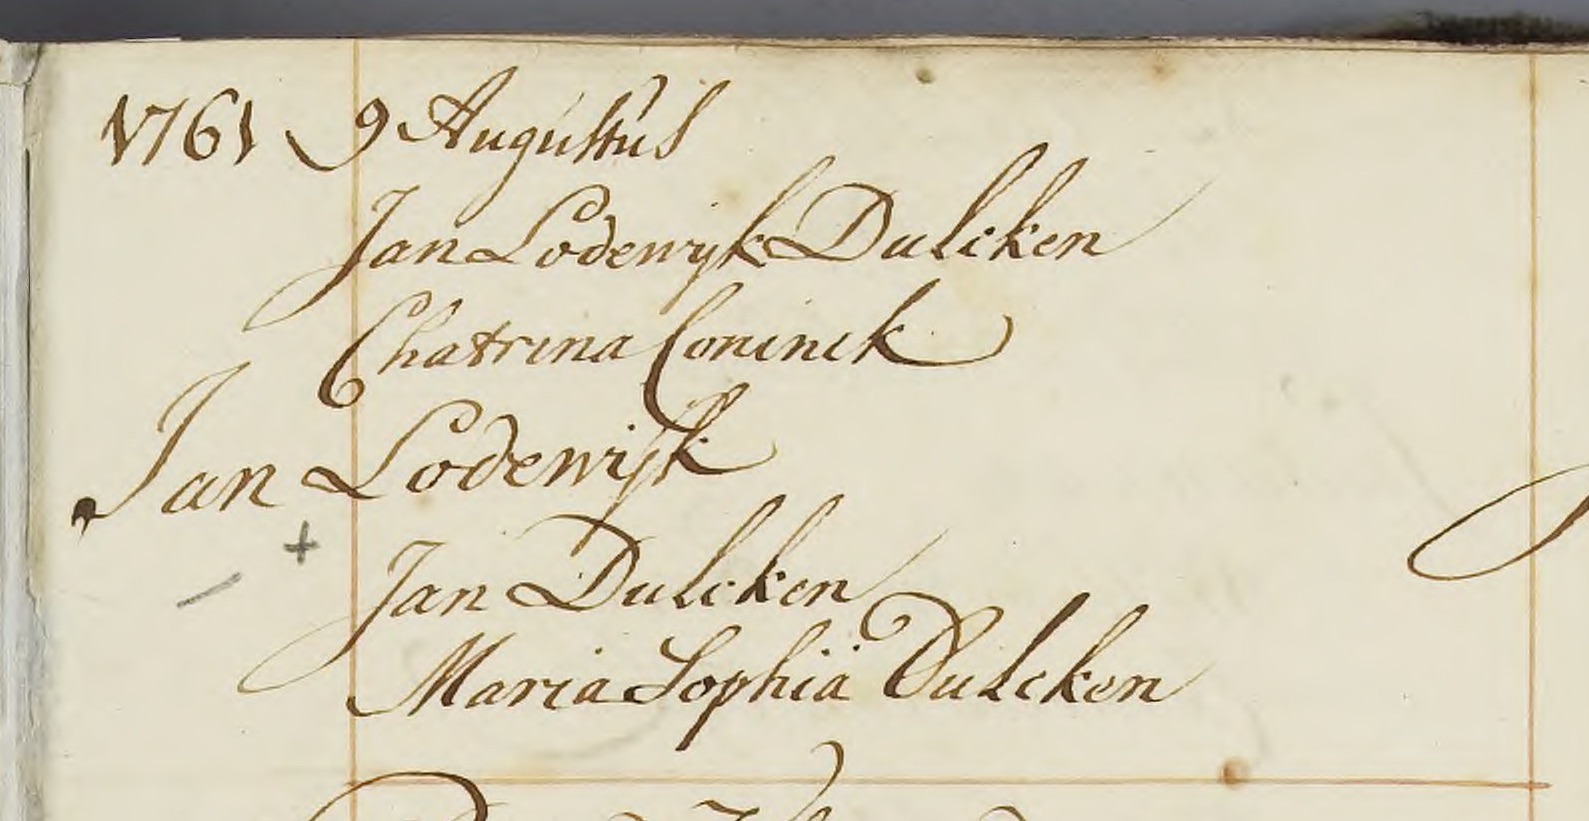 1761 9 Augustus
Jan Lodewijk Dulcken
Chatrina Coninck
Jan Lodewijk
Jan Dulcken
Maria Sophia Dulcken